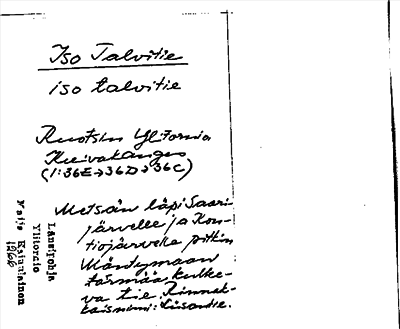 Iso Talvitie
iso talvitie
Ruotsin Ylitornio
Kuivakangas
(1:36E→36D→36C)
Metsän läpi Saari-
järvelle ja Kon-
tiojärvelle pitkin
Mäntymaan
törmää kulke-
va tie. Rinnak-
kaisnimi: Liisantie.
Länsipohja
Ylitornio
Maija Rajaniemi
1966